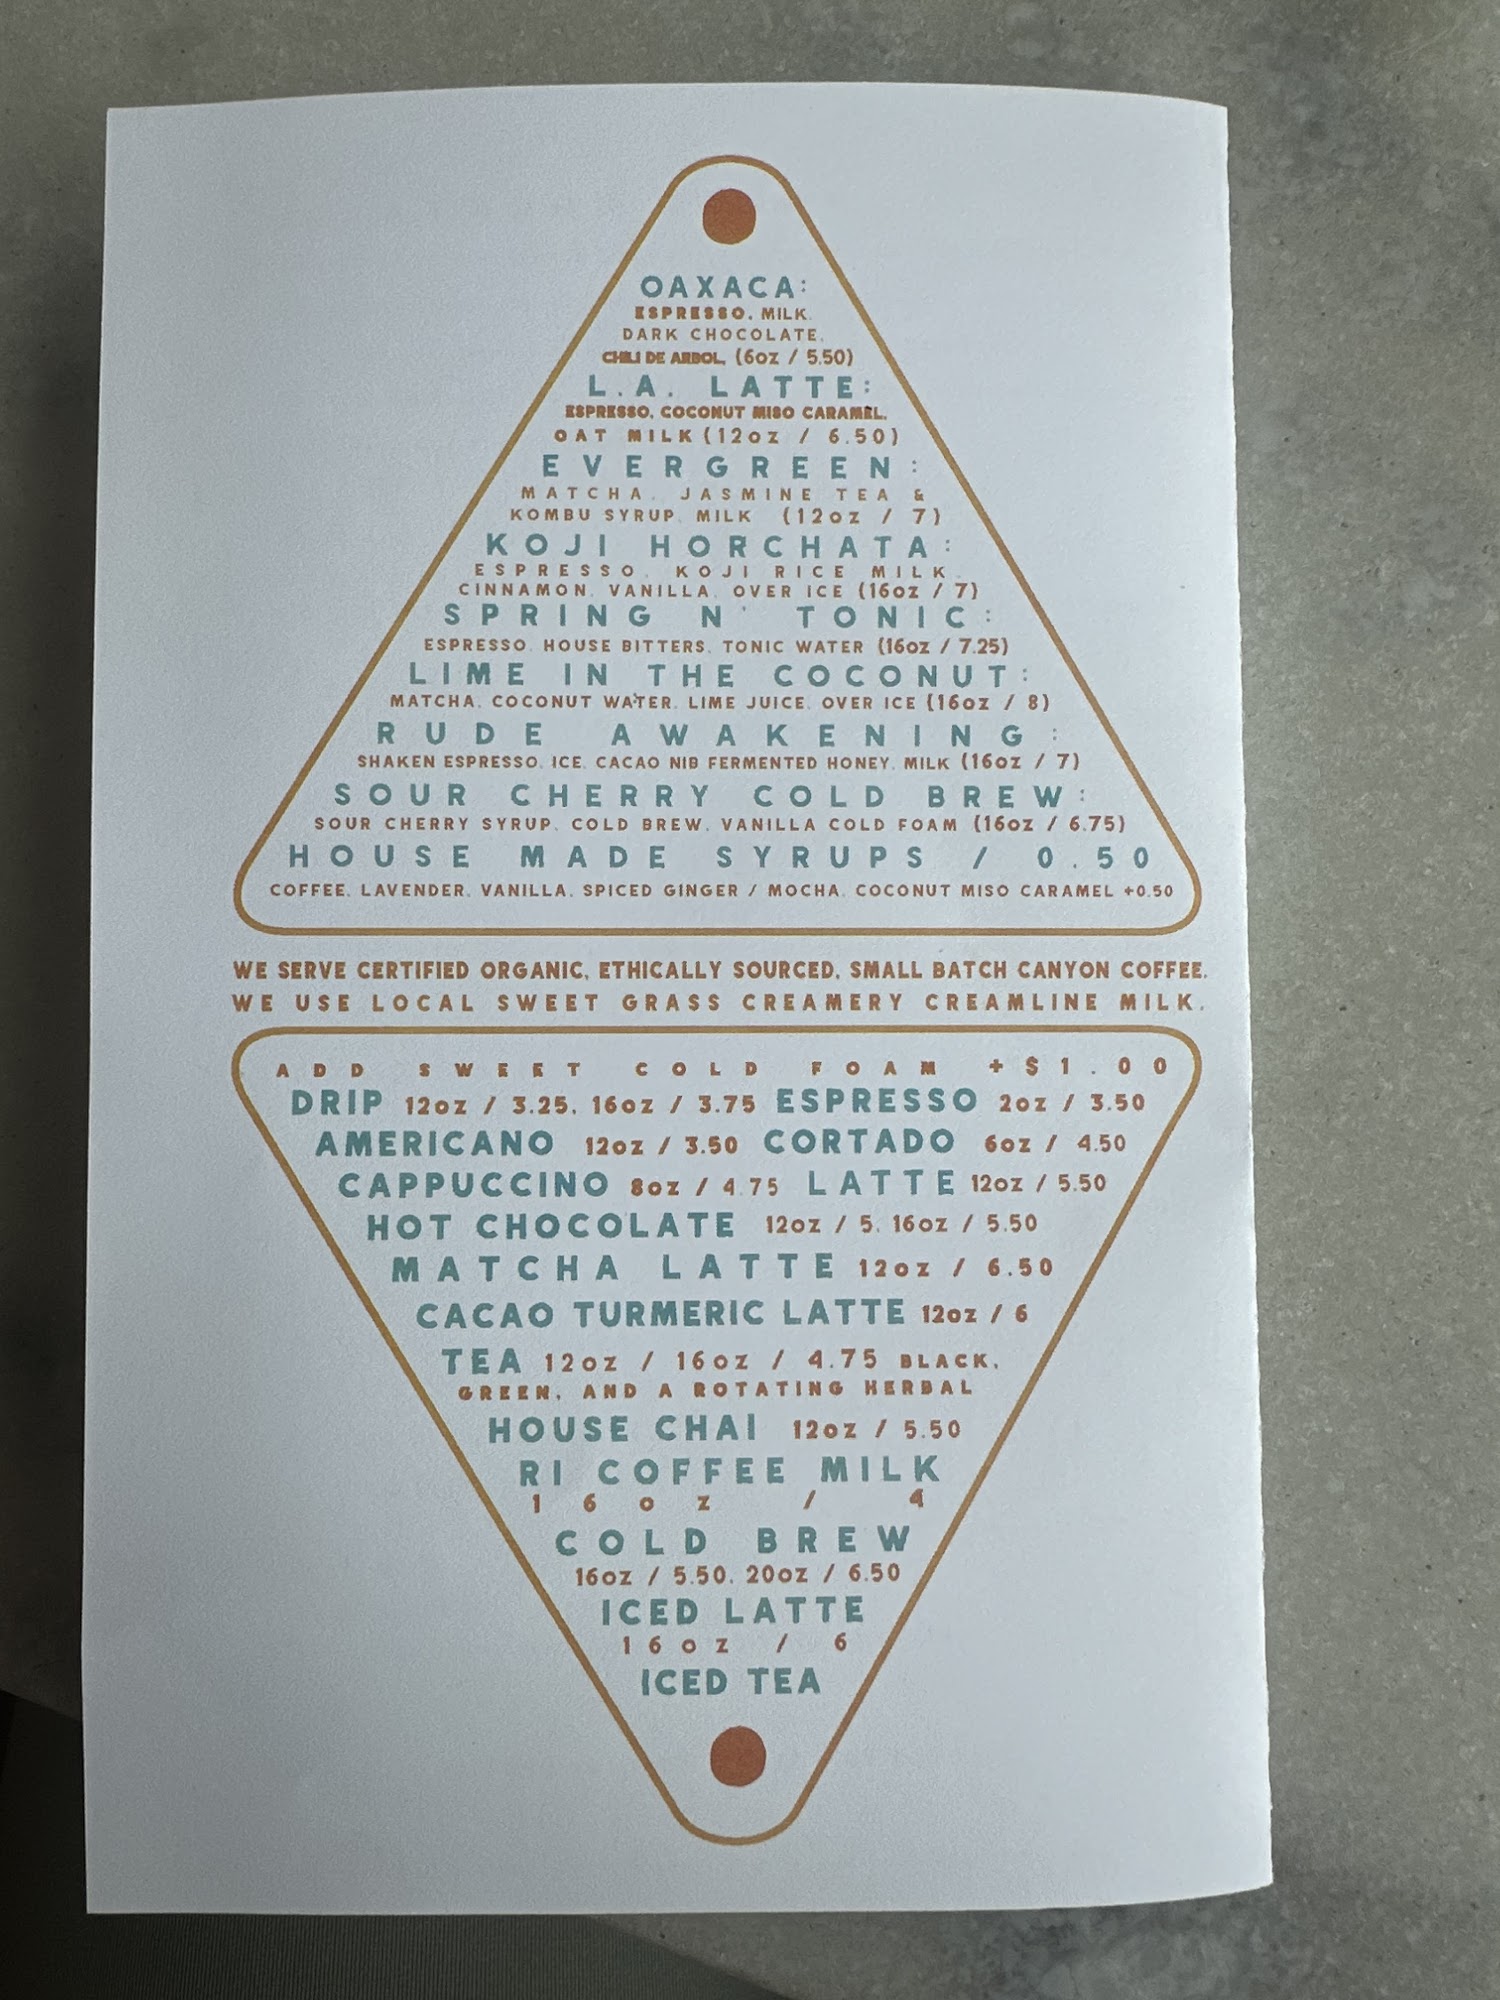 OAXACA:
ESPRESSO, MILK,
DARK CHOCOLATE,
CHILI DE ARBOL, (6oz / 5.50)
L.A. LATTE:
ESPRESSO, COCONUT MISO CARAMEL,
OAT MILK (12oz / 6.50)
EVERGREEN:
MATCHA, JASMINE TEA &
KOMBU SYRUP, MILK (12oz / 7)
KOJI HORCHATA:
ESPRESSO, KOJI RICE MILK,
CINNAMON, VANILLA, OVER ICE (16oz / 7)
SPRING N' TONIC:
ESPRESSO, HOUSE BITTERS, TONIC WATER (16oz / 7.25)
LIME IN THE COCONUT:
MATCHA, COCONUT WATER, LIME JUICE, OVER ICE (16oz / 8)
RUDE AWAKENING:
SHAKEN ESPRESSO, ICE, CACAO NIB FERMENTED HONEY, MILK (16oz / 7)
SOUR CHERRY COLD BREW:
SOUR CHERRY SYRUP, COLD BREW, VANILLA COLD FOAM (16oz / 6.75)
HOUSE MADE SYRUPS / 0.50
COFFEE, LAVENDER, VANILLA, SPICED GINGER / MOCHA, COCONUT MISO CARAMEL +0.50
WE SERVE CERTIFIED ORGANIC, ETHICALLY SOURCED, SMALL BATCH CANYON COFFEE.
WE USE LOCAL SWEET GRASS CREAMERY CREAMLINE MILK.
ADD SWEET COLD FOAM +$1.00
DRIP 12oz / 3.25, 16oz / 3.75 ESPRESSO 2oz / 3.50
AMERICANO 12oz / 3.50 CORTADO 6oz / 4.50
CAPPUCCINO 8oz / 4.75 LATTE 12oz / 5.50
HOT CHOCOLATE 12oz / 5, 16oz / 5.50
MATCHA LATTE 12oz / 6.50
CACAO TURMERIC LATTE 12oz / 6
TEA 12oz / 16oz / 4.75 BLACK,
GREEN, AND A ROTATING HERBAL
HOUSE CHAI 12oz / 5.50
RI COFFEE MILK
16oz / 4
COLD BREW
16oz / 5.50, 20oz / 6.50
ICED LATTE
16oz / 6
ICED TEA